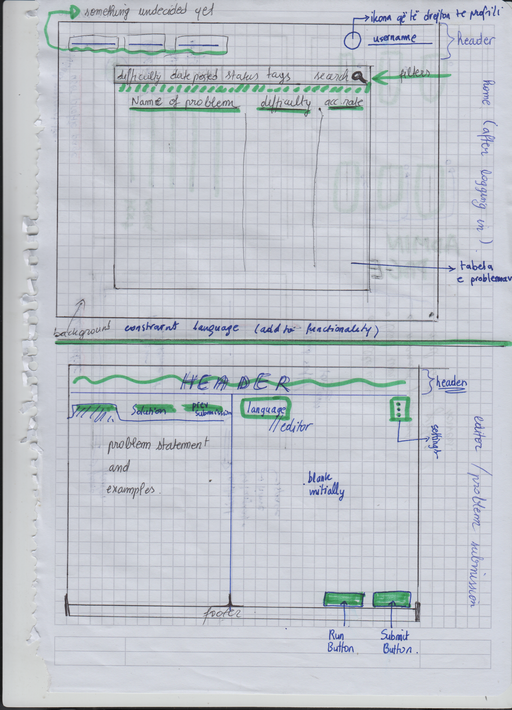 something undecided yet
ikona që të drejton te profili
username
header
difficulty date posted status tags search
filters
Name of problem difficulty acc. rate
home (after logging in)
tabela e problemave
background
constraint language (add to functionality)
HEADER
header
Solution prev submission
language
//editor
settings
problem statement
and
examples
blank
initially
editor / problem submission
footer
Run
Button
Submit
Button